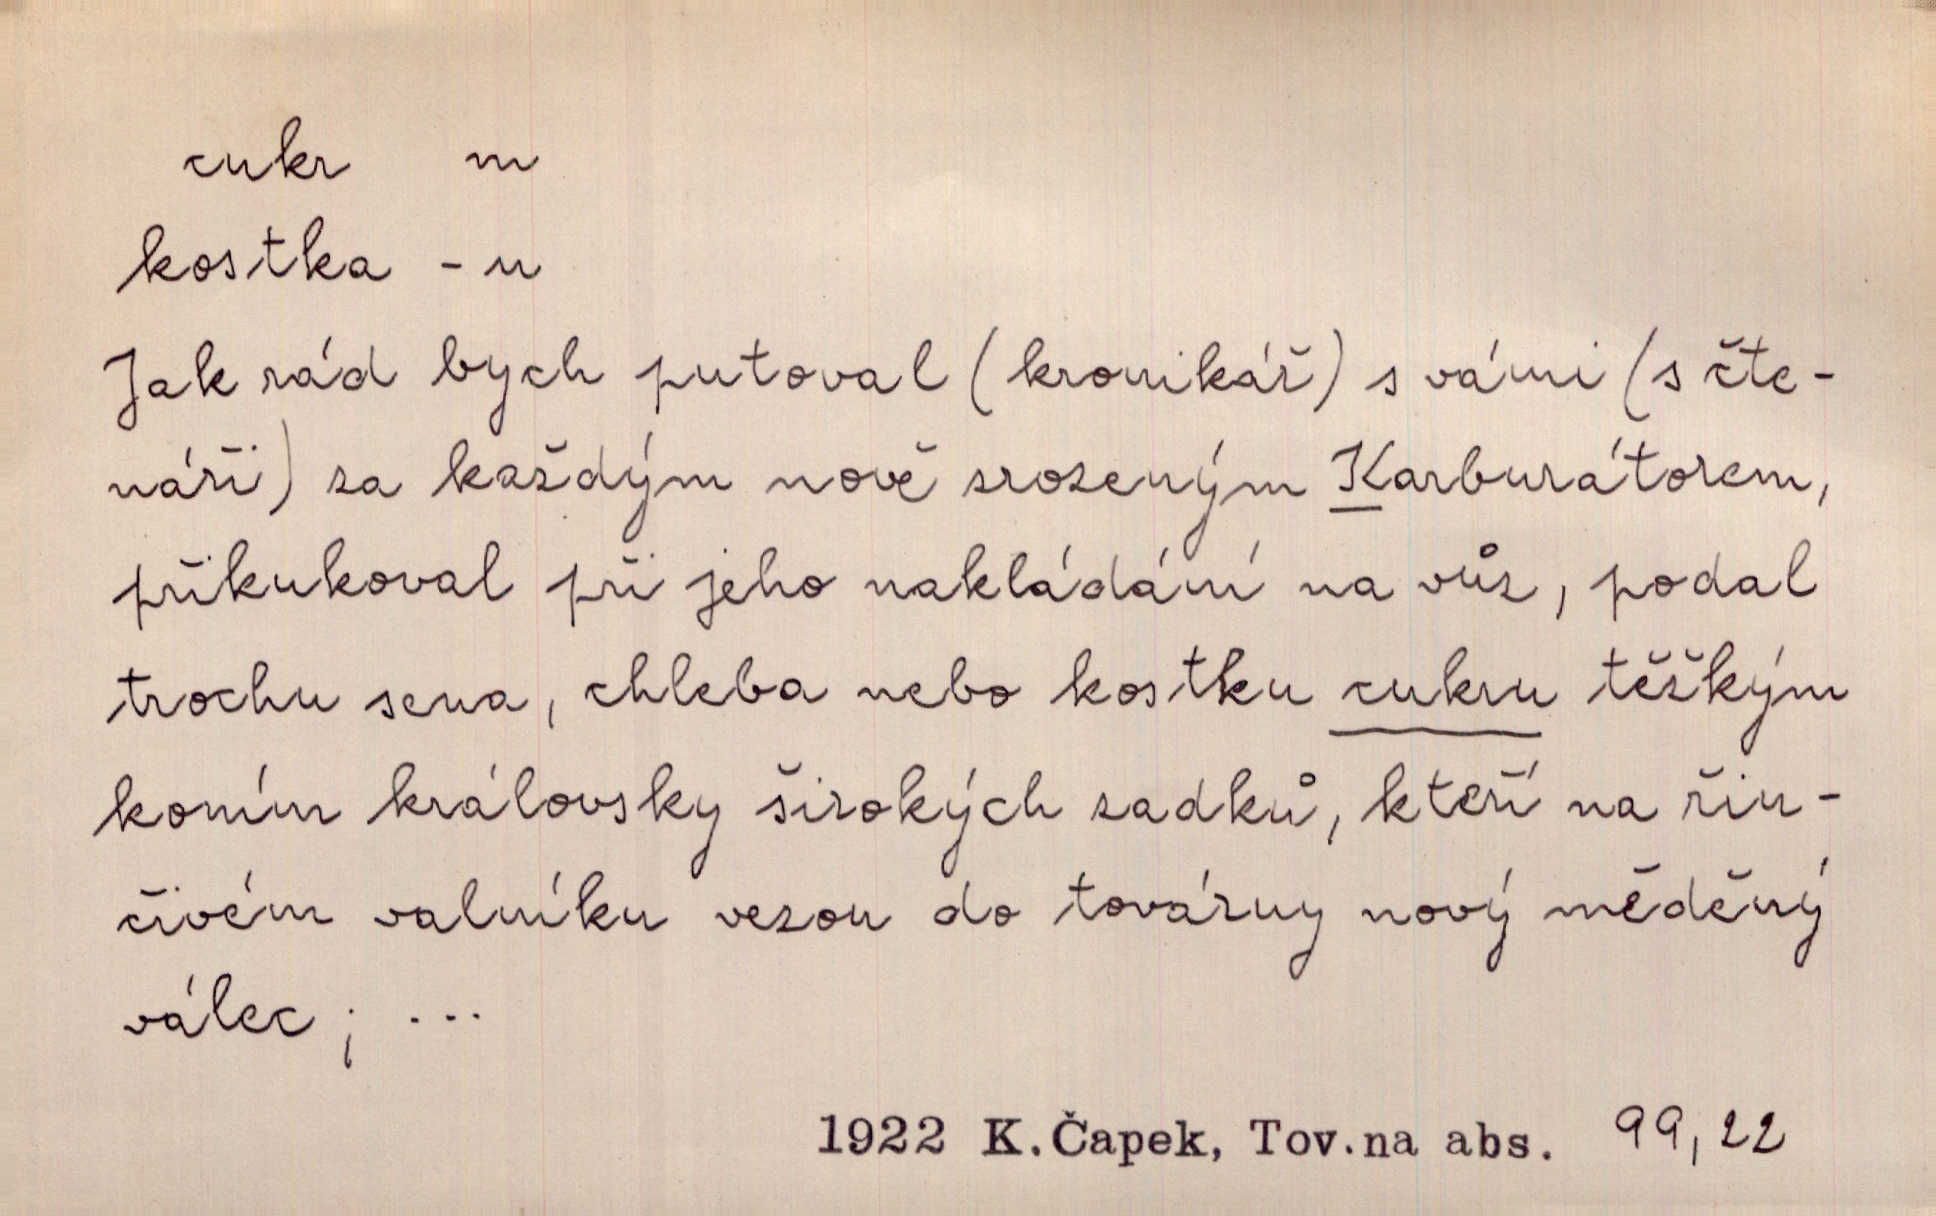 cukr m
kostka -u
Jak rád bych putoval (kronikář) s vámi (s čte-
náři) za každým nově zrozeným Karburátorem,
přikukoval při jeho nakládání na vůz, podal
trochu sena, chleba nebo kostku cukru těžkým
koním královsky širokých zadků, kteří na řin-
čivém valníku vezou do továrny nový měděný
válec; ...
1922 K.Čapek, Tov.na abs. 99,22